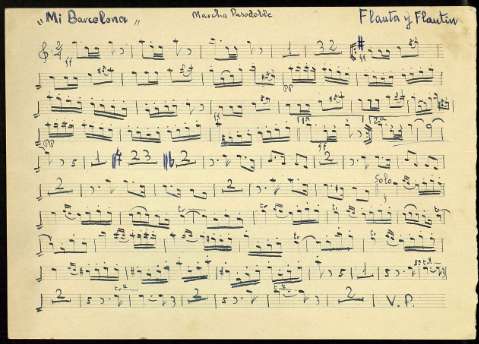 "Mi Barcelona" Marcha Pasodoble Flauta y Flautín
1 32
ff
pp
ff
1ª 2ª
pp
1 23 2 2
2 2 Solo
1
2 2 2 V.P.